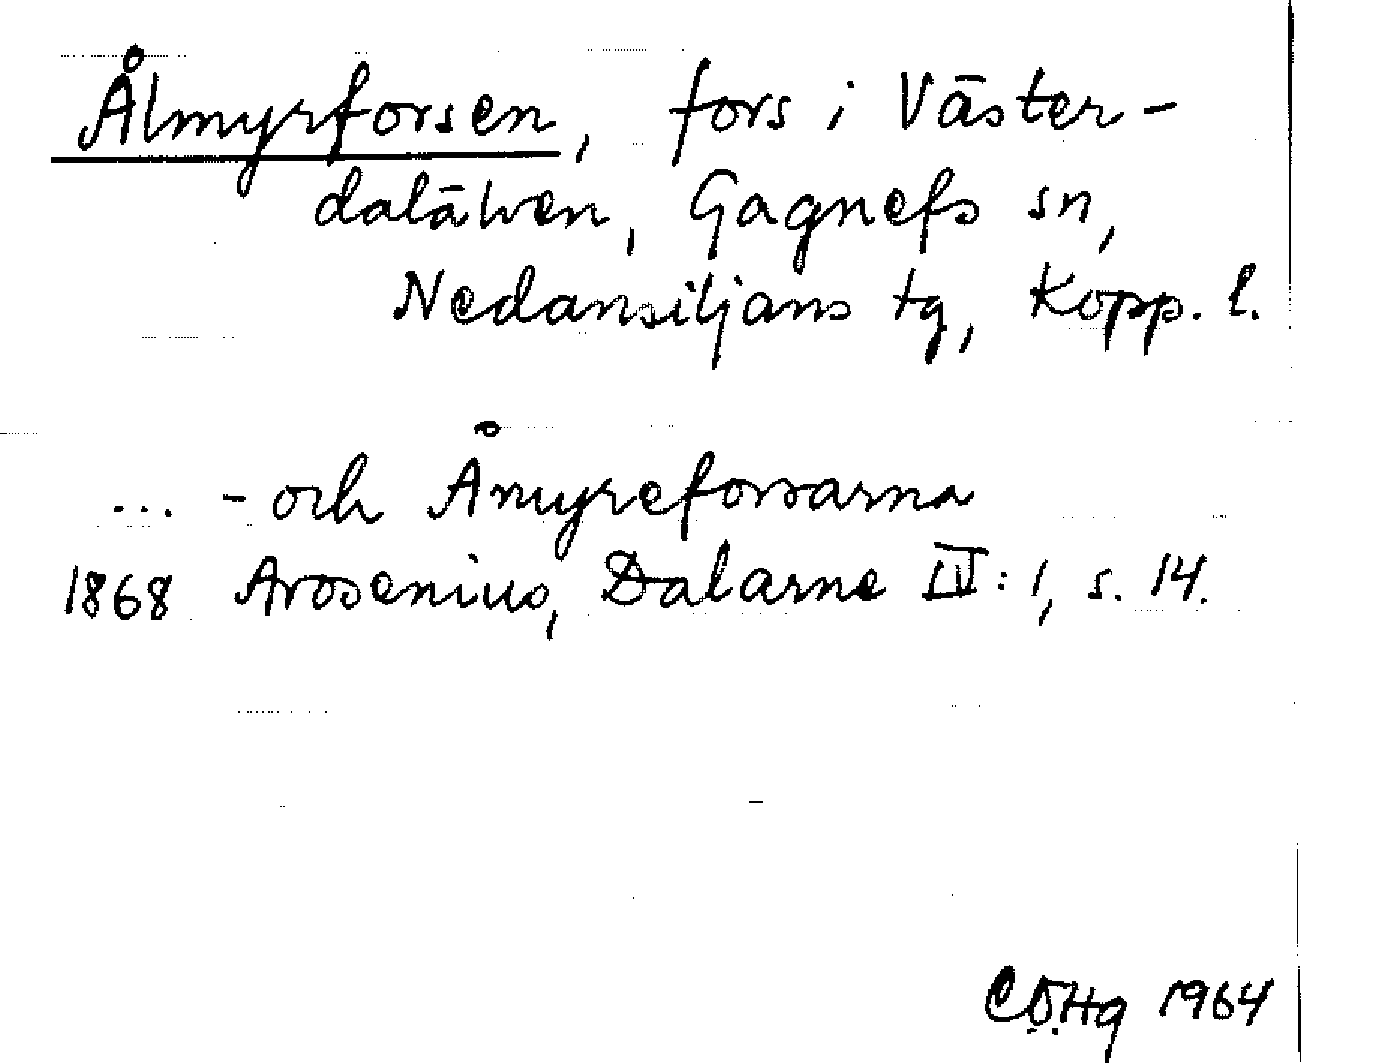 Ålmyrforsen, fors i Väster-
dalälven, Gagnefs sn,
Nedansiljans tg, Kopp. l.
... - och Åmyreforsarna
1868 Arosenius, Dalarne IV: 1, s. 14.
CÖHg 1964